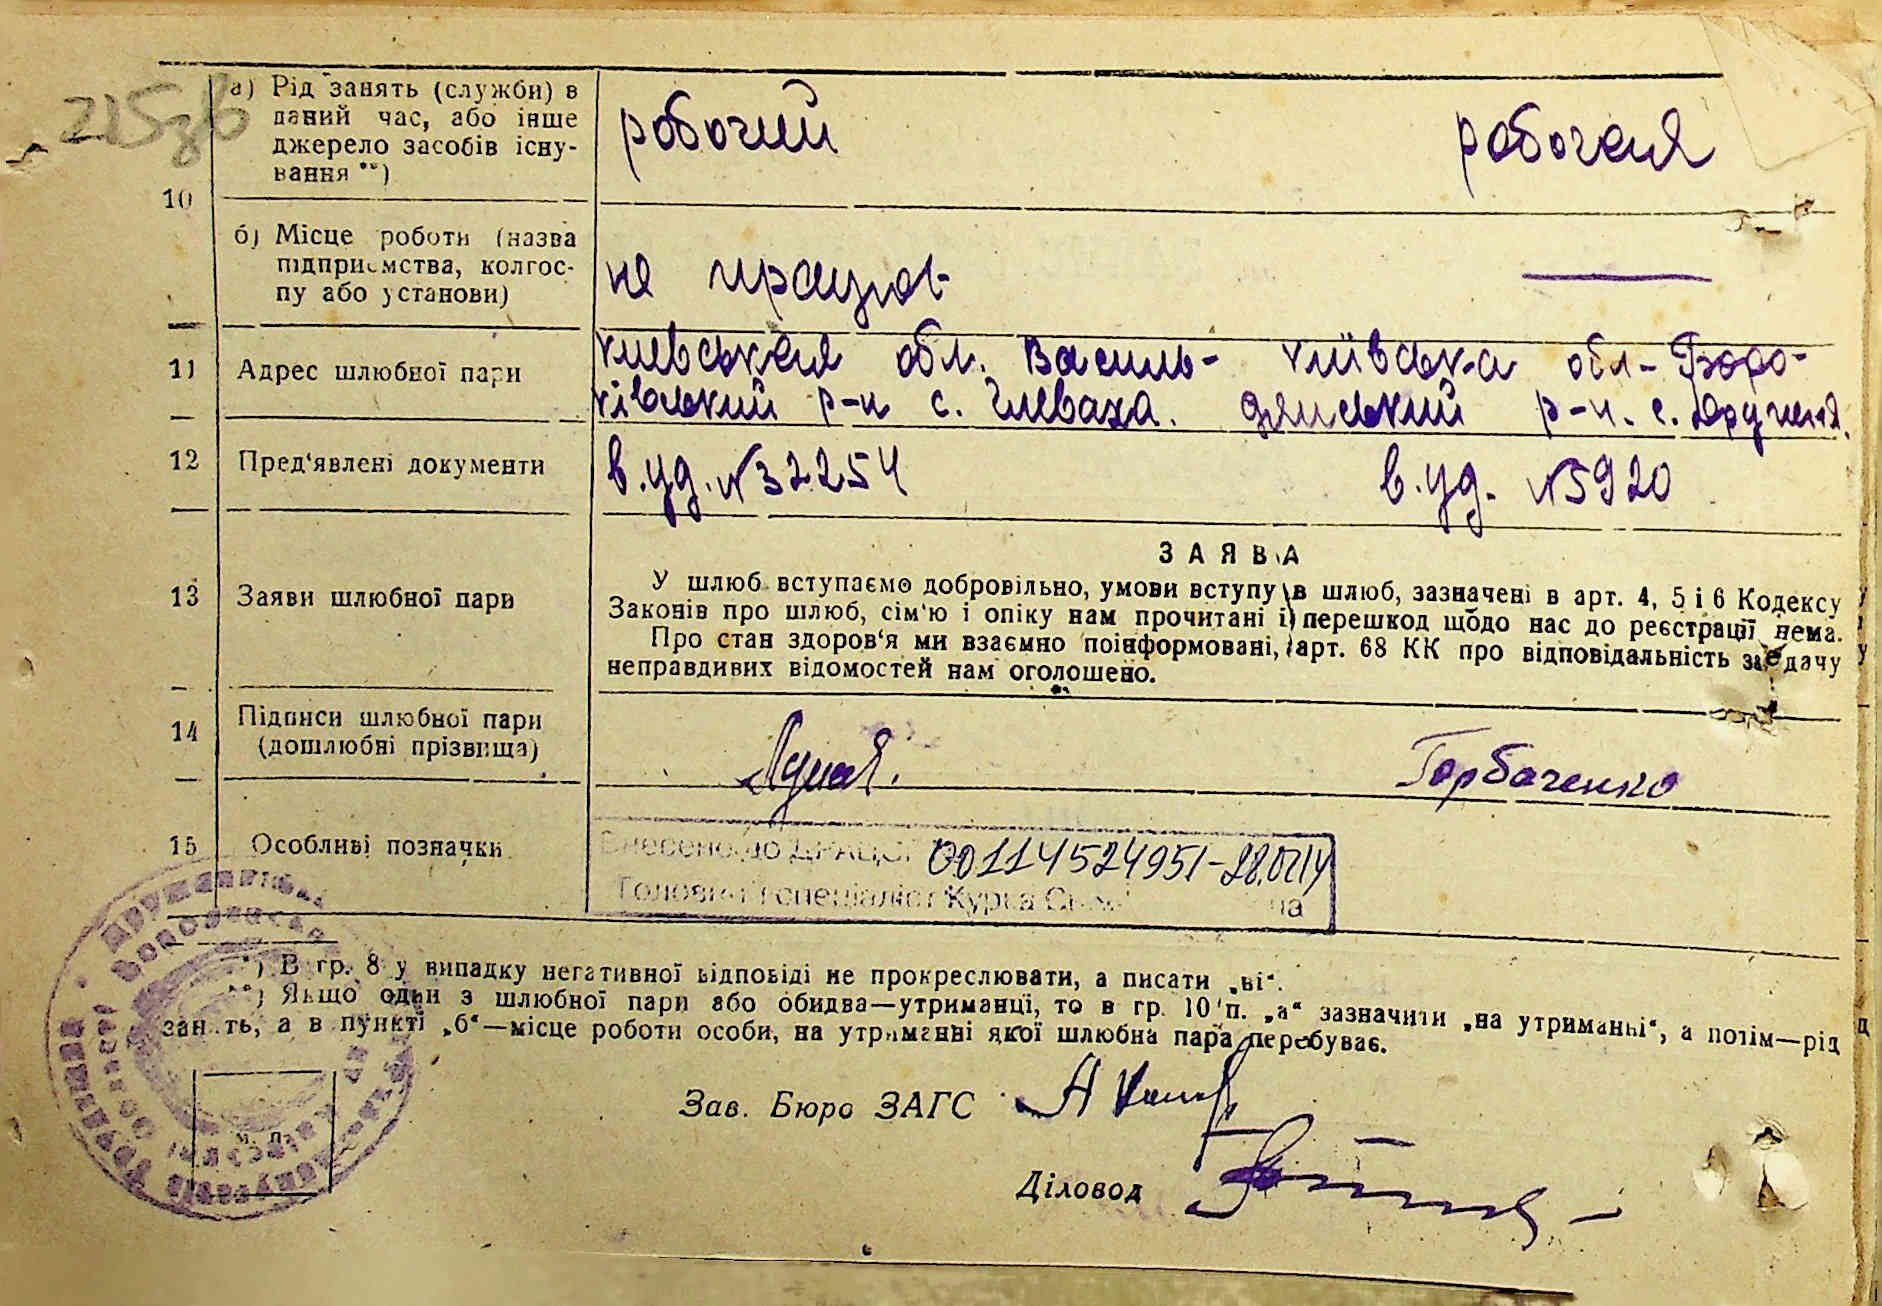 215зв
а) Рід занять (служби) в
даний час, або інше
джерело засобів існу-
вання **)
робочий робочая
10
б) Місце роботи (назва
підприємства, колгос-
пу або установи)
не працює
11 Адрес шлюбної пари
Киевськая обл. Василь- Київська обл-Боро-
ківський р-н с. Глеваха. дянський р-н. с. Дружня.
12 Пред'явлені документи
в.уд. №32254 в.уд. №5920
13 Заяви шлюбної пари
ЗАЯВА
У шлюб вступаємо добровільно, умови вступу в шлюб, зазначені в арт. 4, 5 і 6 Кодексу
Законів про шлюб, сім'ю і опіку нам прочитані і перешкод щодо нас до реєстрації нема.
Про стан здоров'я ми взаємно поінформовані, арт. 68 КК про відповідальність за дачу
неправдивих відомостей нам оголошено.
14 Підписи шлюбної пари
(дошлюбні прізвища)
Горбаченко
15 Особливі позначки
Внесено до ДРАЦСГ 00114524951-28.07.14
Головний спеціаліст Курка
*) В гр. 8 у випадку негативної відповіді не прокреслювати, а писати „ні“.
**) Якщо один з шлюбної пари або обидва—утриманці, то в гр. 10 п. „а“ зазначити „на утриманні“, а потім—рід
занять, а в пункті „б“—місце роботи особи, на утриманні якої шлюбна пара перебуває.
Зав. Бюро ЗАГС
м. п.
Діловод